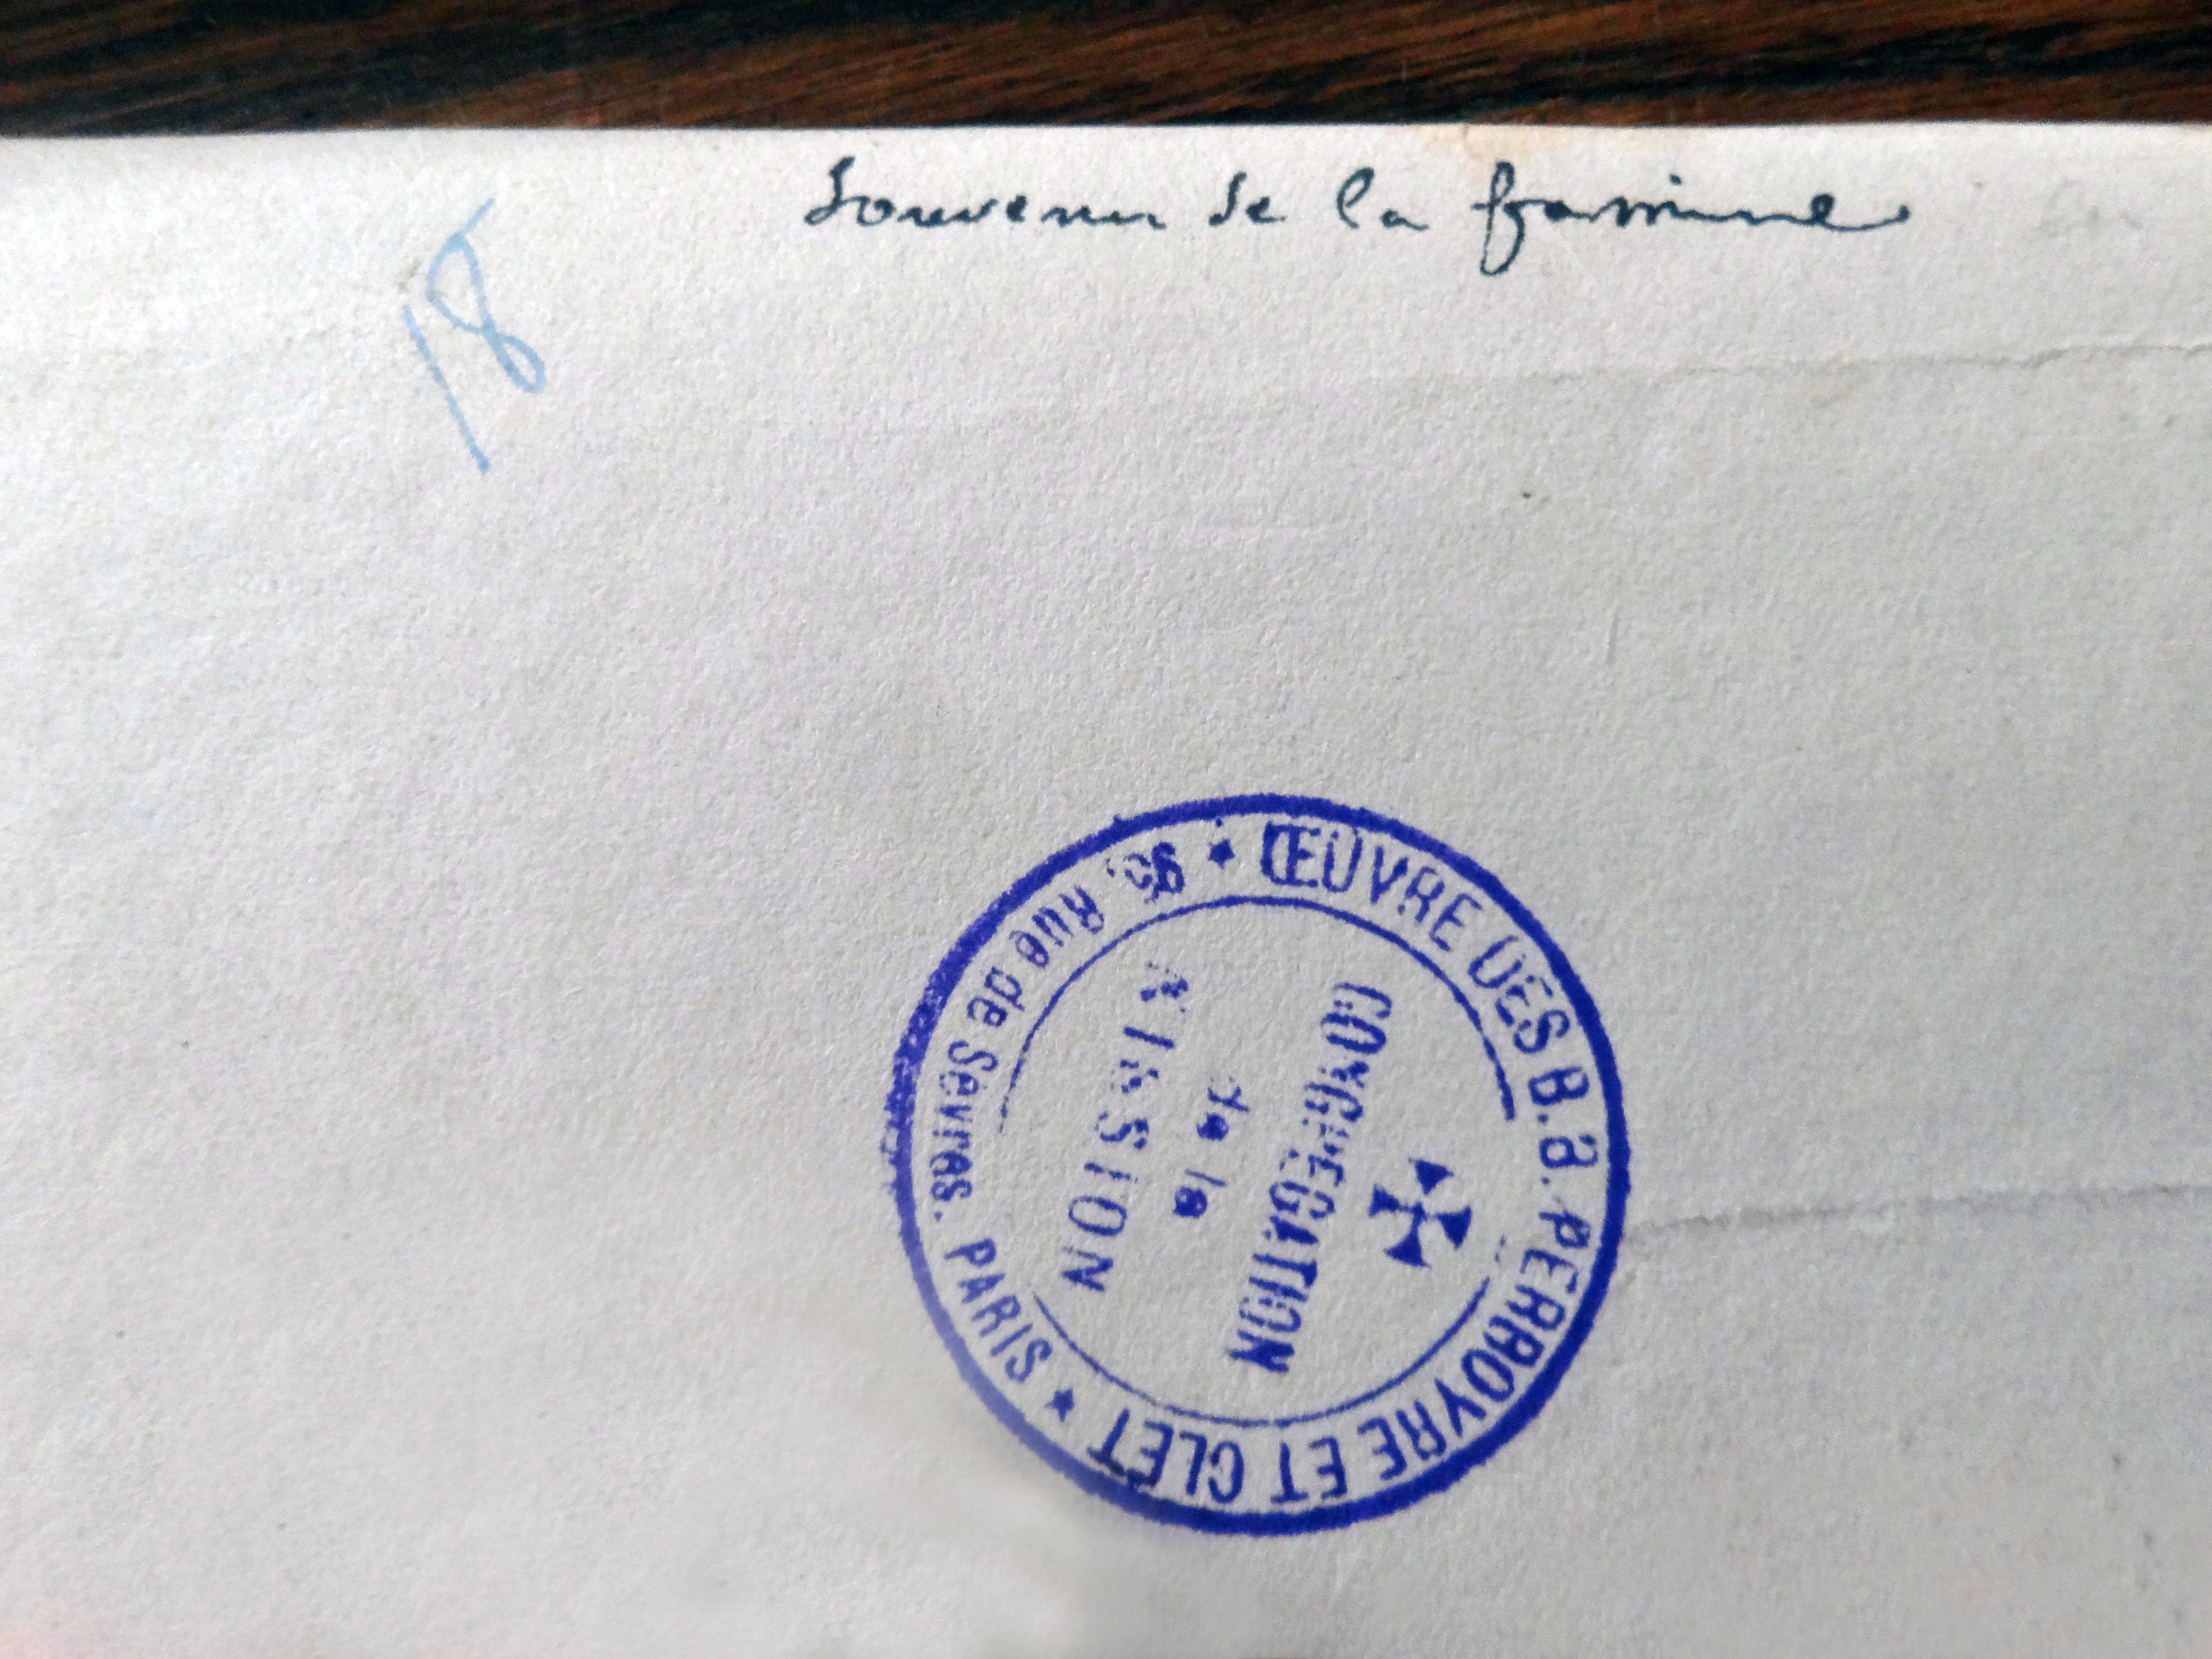 Souvenir de la famine
18
ŒUVRE DES B.B. PERBOYRE ET CLET
95, Rue de Sèvres. PARIS
CONGRÉGATION
de la
MISSION